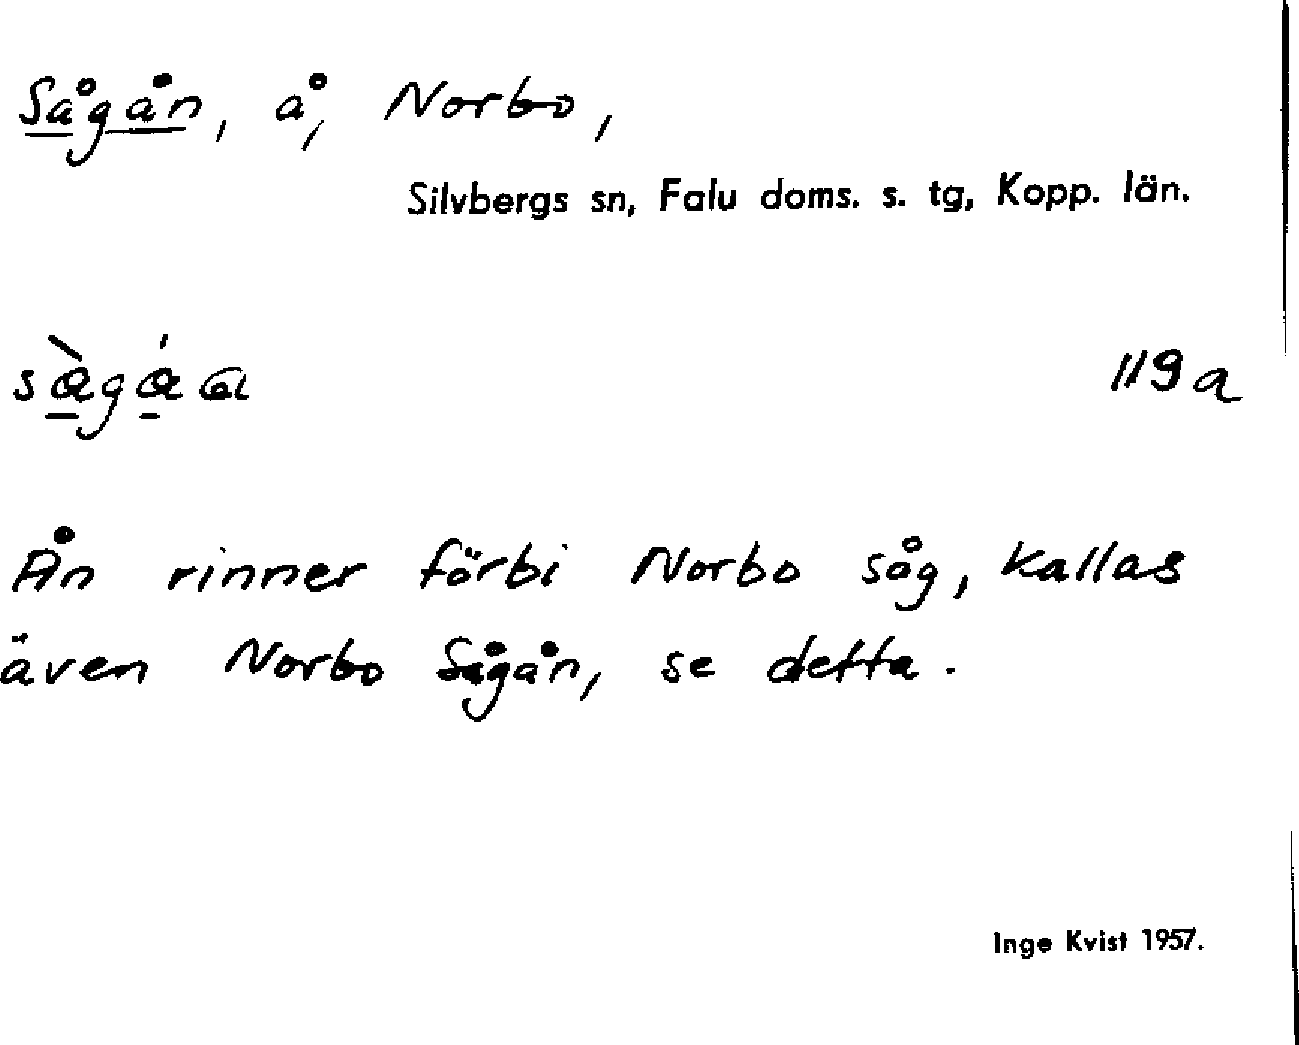 Sågån, å, Norbo,
Silvbergs sn, Falu doms. s. tg, Kopp. län.
119a
Ån rinner förbi Norbo såg, kallas
även Norbo Sågån, se detta.
Inge Kvist 1957.